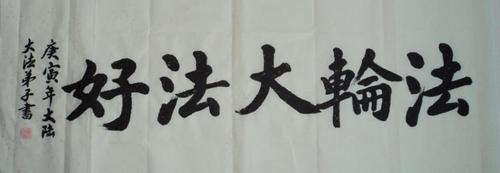 法輪大法好
庚寅年大陆
大法弟子書